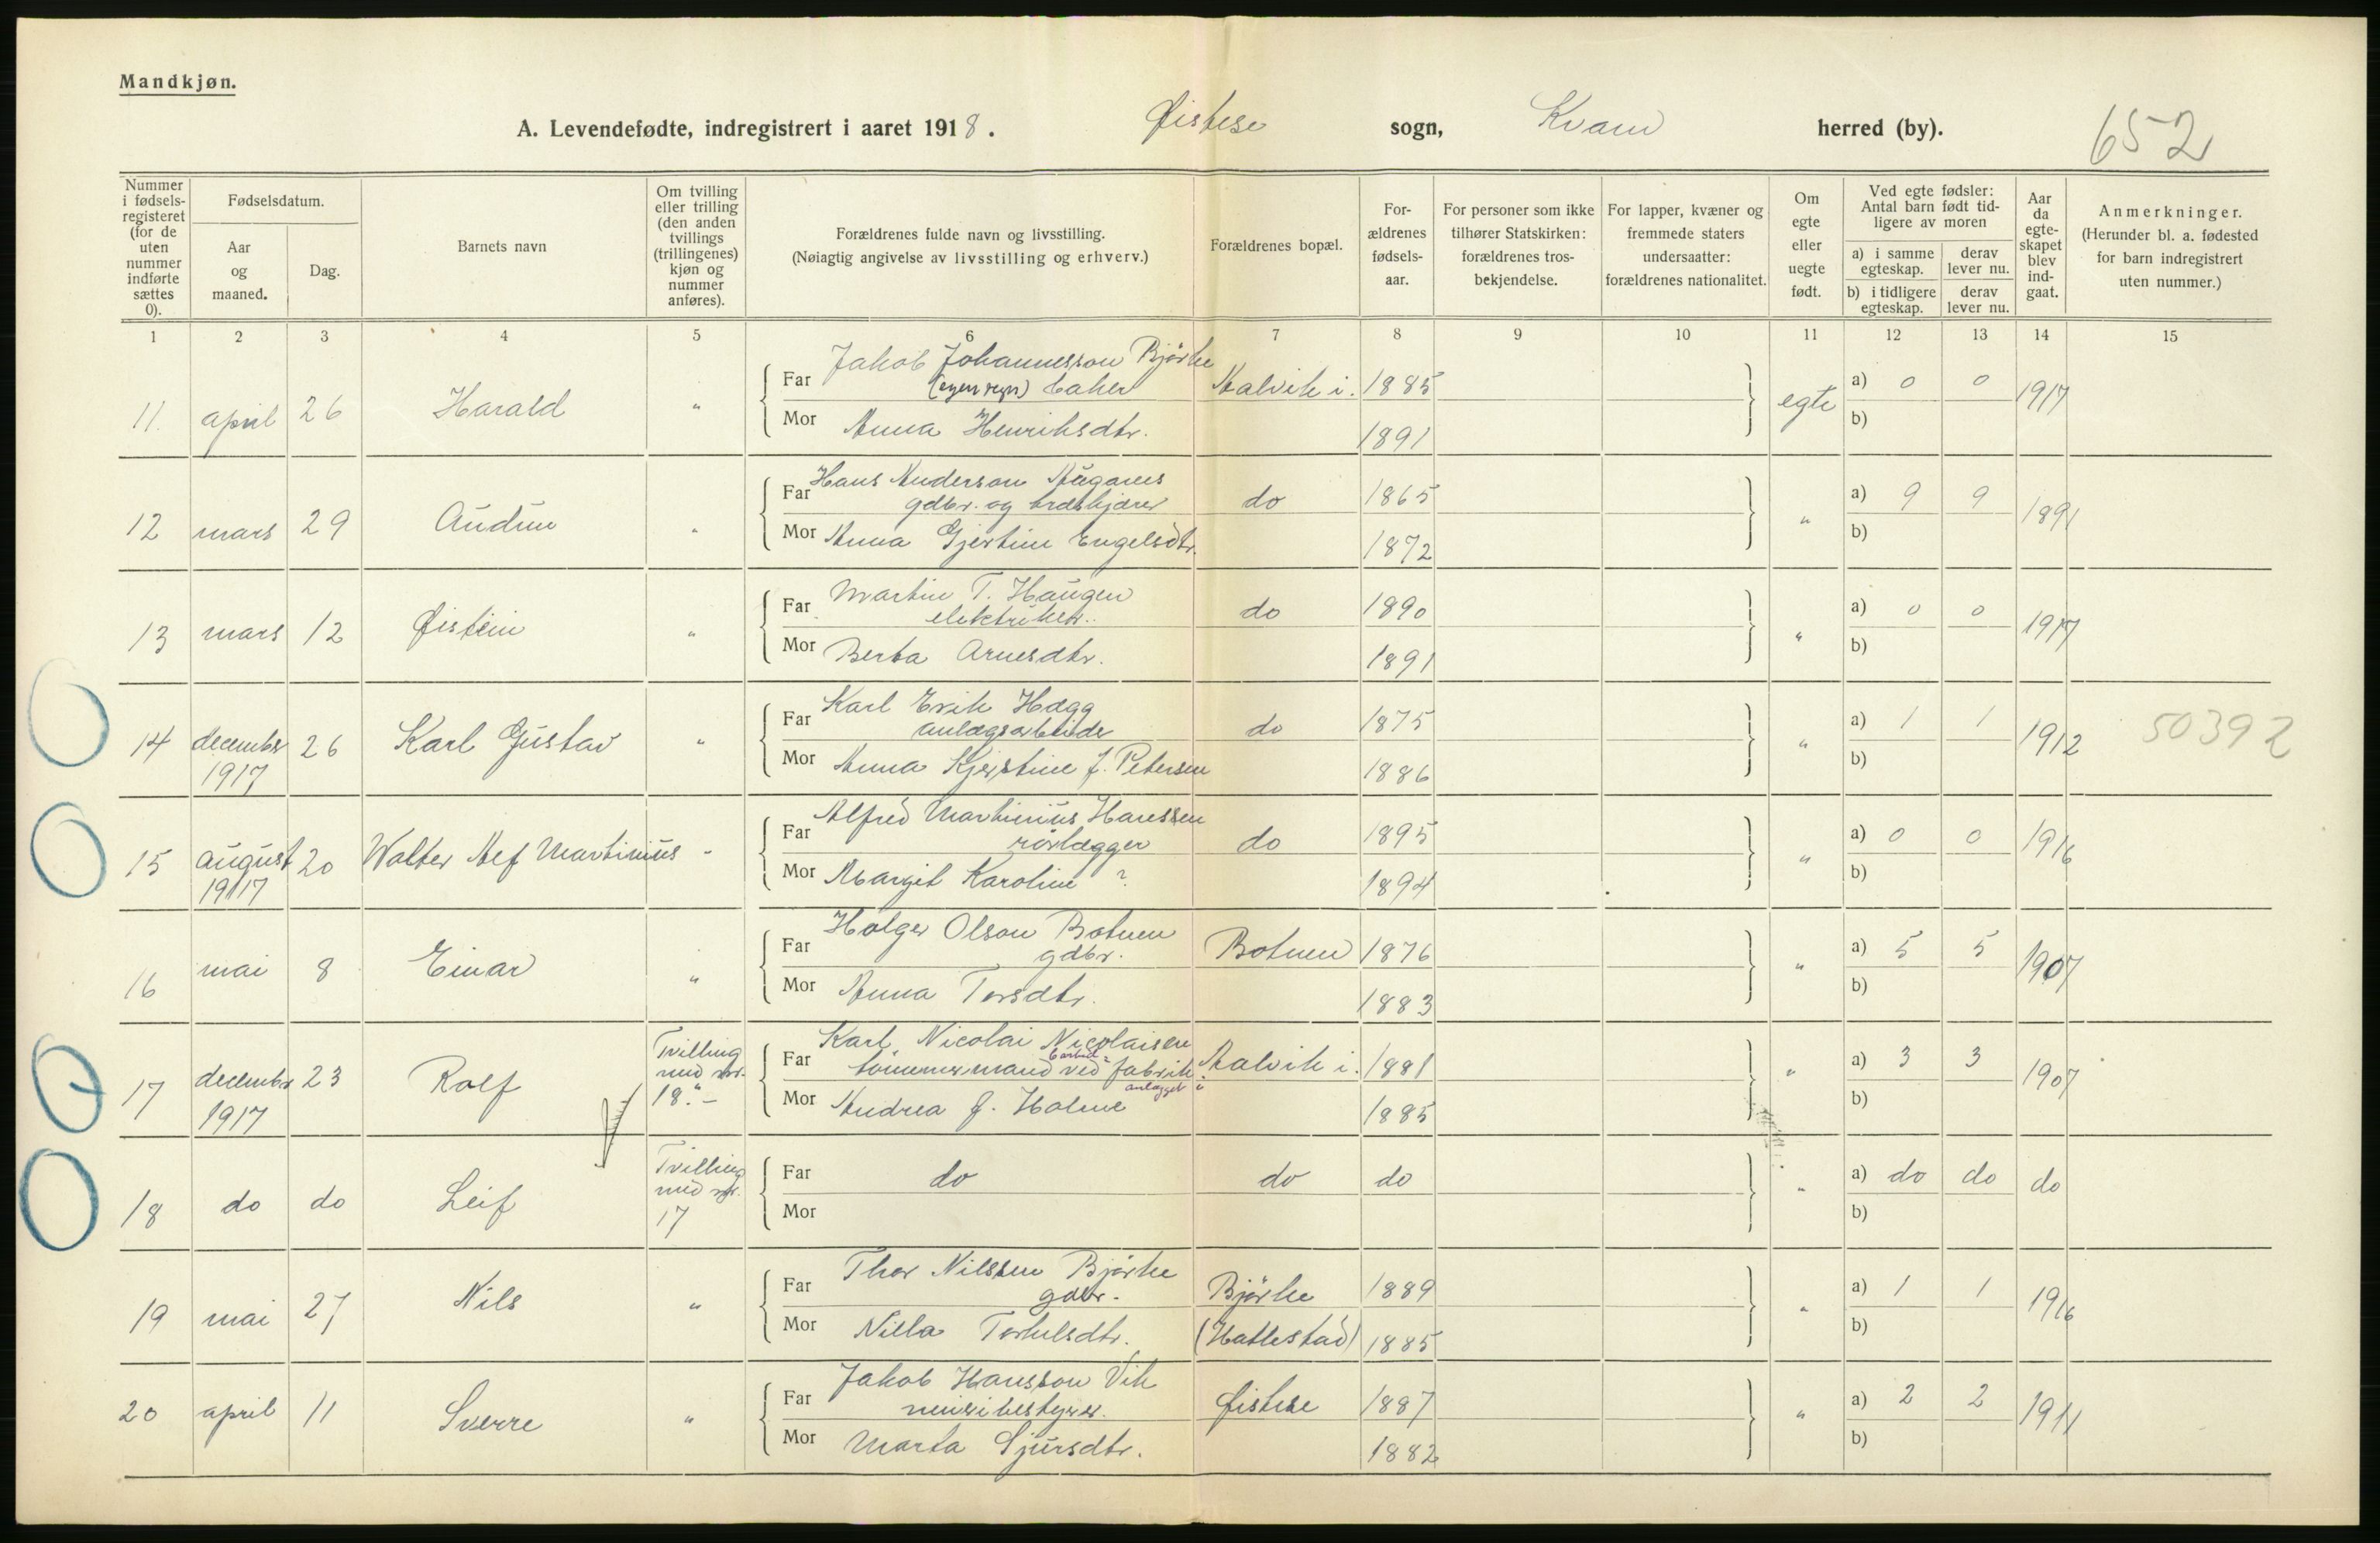 Mandkjøn.
A. Levendefødte, indregistrert i aaret 1918. Øistese sogn, Kvam herred (by). 652
Nummer i fødsels-registeret (for de uten nummer indførte sættes 0).
Fødselsdatum.
Aar og maaned.
Dag.
Barnets navn
Om tvilling eller trilling (den anden tvillings (trillingenes) kjøn og nummer anføres).
Forældrenes fulde navn og livsstilling.
(Nøiagtig angivelse av livsstilling og erhverv.)
Forældrenes bopæl.
For-ældrenes fødsels-aar.
For personer som ikke tilhører Statskirken: forældrenes tros-bekjendelse.
For lapper, kvæner og fremmede staters undersaatter: forældrenes nationalitet.
Om egte eller uegte født.
Ved egte fødsler: Antal barn født tid-ligere av moren
a) i samme egteskap. derav lever nu.
b) i tidligere egteskap. derav lever nu.
Aar da egte-skapet blev ind-gaat.
Anmerkninger.
(Herunder bl. a. fødested for barn indregistrert uten nummer.)
1 2 3 4 5 6 7 8 9 10 11 12 13 14 15
Jakob Johannesson Björke
11. april 26 Harald " Far baker Aalvik i. 1885 egte a) 0 0 1917
Mor Anna Henriksdtr. 1891 b)
Hans Anderson
12 mars 29 Audun " Far gdbr. og do 1865 " a) 9 9 1891
Mor Anna Gjertine Engelsdtr. 1872 b)
Martin T. Haugen
13 mars 12 Øistein " Far elektriker. do 1890 " a) 0 0 1917
Mor Berta Arnesdtr. 1891 b)
Karl Erik Hægg
14 december 1917 26 Karl Gustav " Far anlægsarbeider do 1875 " a) 1 1 1912 50392
Mor Anna Kjerstine J. Petersen 1886 b)
Alfred Martinius Hanssen
15 august 1917 20 Walter Alf Martinius - Far rörlægger do 1895 " a) 0 0 1916
Mor Margit Karoline ? 1894 b)
Holger Olson Botnen
16 mai 8 Einar " Far gdbr. Botnen 1876 " a) 5 5 1907
Mor Anna Torsdtr. 1883 b)
Karl Nicolai Nicolaisen
17 december 1917 23 Rolf Tvilling med nr. 18. - Far tömmermand ved fabrik anlægget Aalvik i. 1881 " a) 3 3 1907
Mor Andrea J. Holme 1885 b)
18 do do Leif Tvilling med nr. 17 Far do do do " a) do do do
Mor b)
Thor Nilssen Björke
19 mai 27 Nils " Far gdbr. Björke 1889 " a) 1 1 1916
Mor Nilla Torkelsdtr. (Hatlestad) 1885 b)
Jakob Hansson Vik
20 april 11 Sverre " Far meieribestyrer. Øistese 1887 " a) 2 2 1911
Mor Marta Sjursdtr. 1882 b)